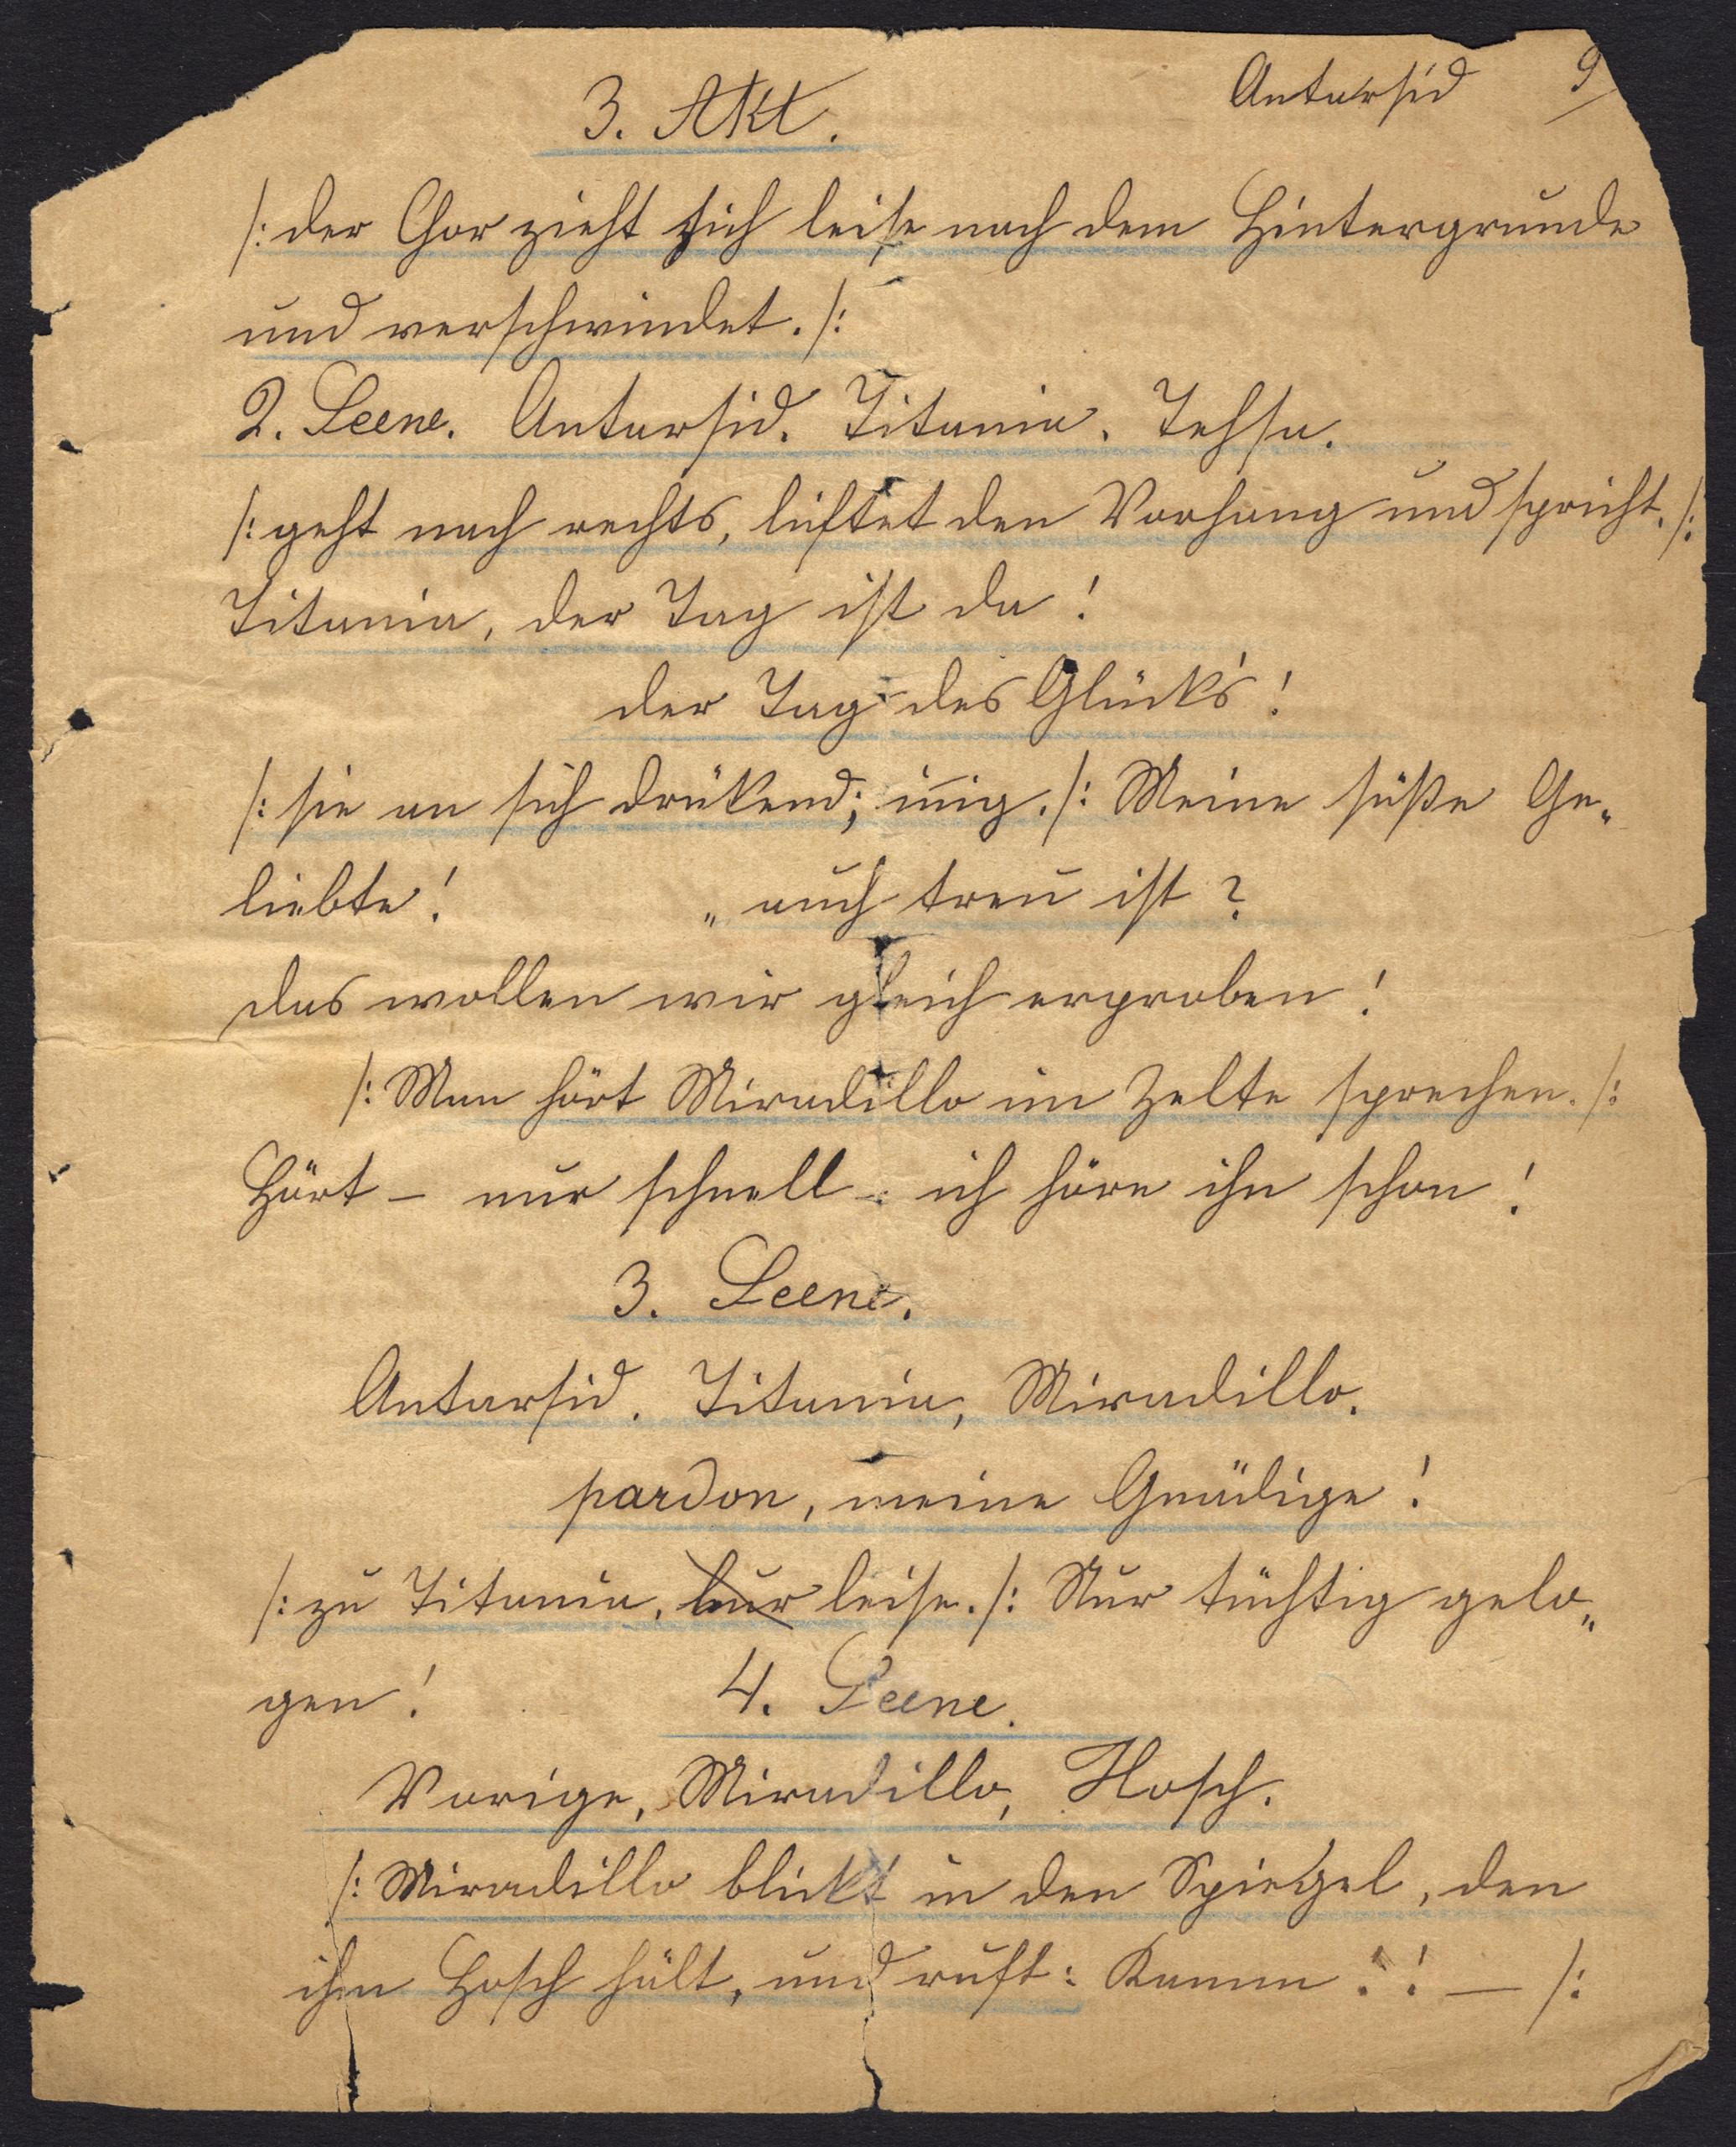 Antarsid 9
3. Akt.
/: der Chor zieht sich leise nach dem Hintergrunde
und verschwindet. /:
2. Scene. Antarsid. Titania. Tessa.
/: geht nach rechts, lüftet den Vorhang und spricht. /:
Titania, der Tag ist da!
der Tag des Glück's!
/: sie an sich drükend; inig. /: Meine süße Ge„
liebte! „ auch treu ist?
das wollen wir gleich erproben!
/: Man hört Miradillo im Zelte sprechen. /:
Hört – nur schnell – ich höre ihn schon!
3. Scene.
Antarsid. Titania, Miradillo.
pardon, meine Gnädige!
/: zu Titania, leise. /: Nur tüchtig gelo„
gen!
4. Scene.
Vorige, Miradillo, Hosch.
/: Miradillo blickt in den Spiegel, den
ihm Hosch hält, und ruft: Kamm!! — /: